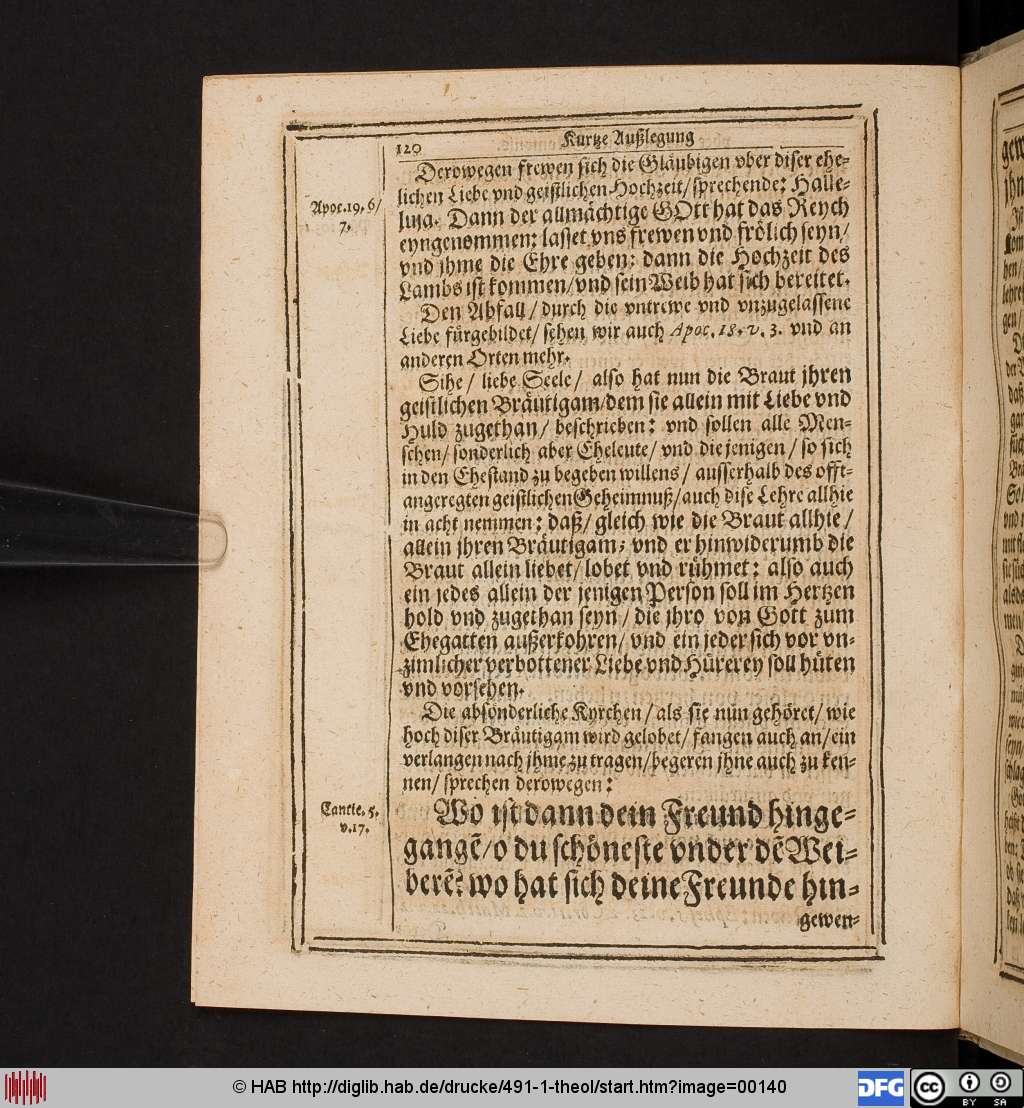 120
Kurtze Außlegung
Derowegen frewen sich die Gläubigen vber diser ehe-
lichen Liebe vnd geistlichen Hochzeit/ sprechende: Halle-
Apoc. 19. 6/
7.
luja. Dann der allmächtige GOtt hat das Reych
eyngenommen: lasset vns frewen vnd frölich seyn/
vnd jhme die Ehre geben: dann die Hochzeit des
Lambs ist kommen/ vnd sein Weib hat sich bereitet.
Den Abfall/ durch die vntrewe vnd vnzugelassene
Liebe fürgebildet/ sehen wir auch Apoc. 18. v. 3. vnd an
anderen Orten mehr.
Sihe/ liebe Seele/ also hat nun die Braut jhren
geistlichen Bräutigam/ dem sie allein mit Liebe vnd
Huld zugethan/ beschrieben: vnd sollen alle Men-
schen/ sonderlich aber Eheleute/ vnd die jenigen/ so sich
in den Ehestand zu begeben willens/ ausserhalb des offt-
angeregten geistlichen Geheimnuß/ auch dise Lehre allhie
in acht nemmen: daß/ gleich wie die Braut allhie/
allein jhren Bräutigam; vnd er hinwiderumb die
Braut allein liebet/ lobet vnd rühmet: also auch
ein jedes allein der jenigen Person soll im Hertzen
hold vnd zugethan seyn/ die jhro von Gott zum
Ehegatten außerkohren/ vnd ein jeder sich vor vn-
zimlicher verbottener Liebe vnd Hürerey soll hüten
vnd vorsehen.
Die absönderliche Kyrchen/ als sie nun gehöret/ wie
hoch diser Bräutigam wird gelobet/ fangen auch an/ ein
verlangen nach jhme zu tragen/ begeren jhne auch zu ken-
nen/ sprechen derowegen:
Cantic. 5.
v. 17.
Wo ist dann dein Freund hinge-
gangē/ o du schöneste vnder dē Wei-
berē? wo hat sich deine Freunde hin-
gewen-
© HAB http://diglib.hab.de/drucke/491-1-theol/start.htm?image=00140
DFG
cc
BY SA